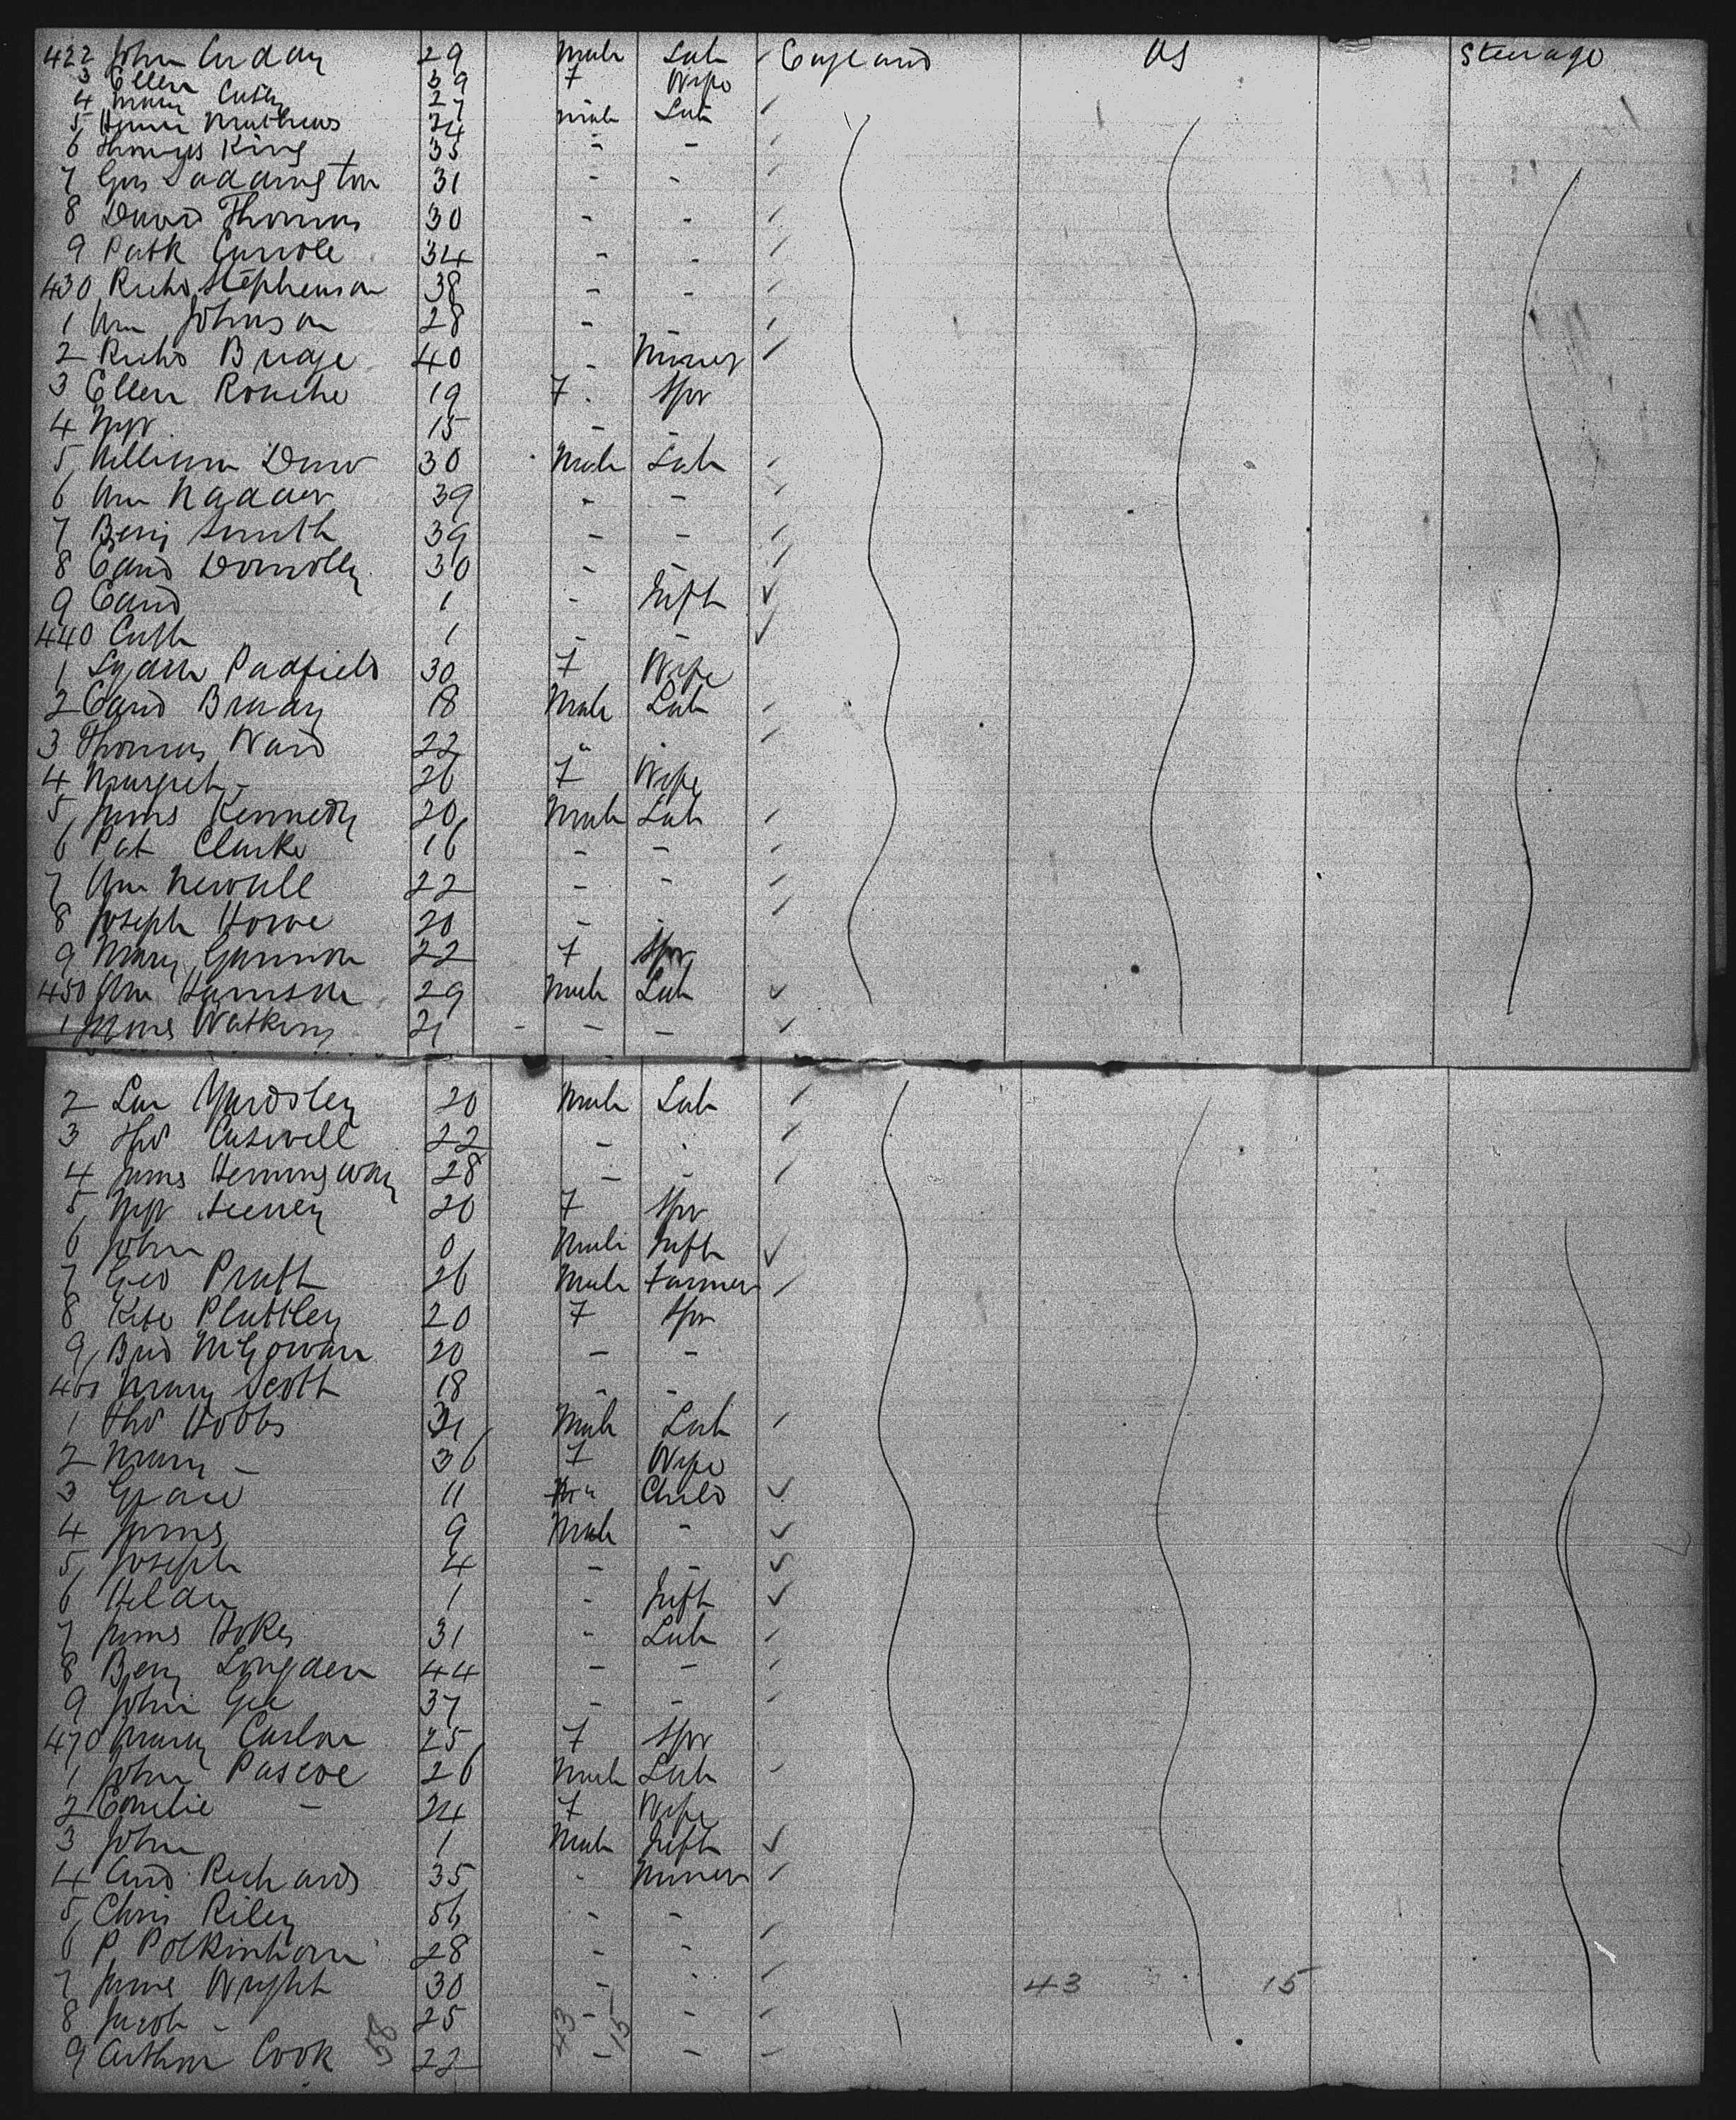 422 John 29 Male Lab England US Steerage
3 Ellen 39 F Wife
4 Mary 27
5 Mathews 24 Male Lab
6 Thomas King 35 - -
7 Geo Saddington 31 - -
8 David Thomas 30 - -
9 Patk Carrole 34 - -
430 Richd Stephenson 38 - -
1 Wm Johnson 28 - -
2 Richd Budge 40 - Miner
3 Ellen Rouche 19 F Spr
4 Mgt 15 - -
5 William 30 Male Lab
6 Wm 39 - -
7 Benj Smith 39 - -
8 Edwd Donnolly 30 - -
9 Edwd 1 - Inft
440 Cath 1 - -
1 Padfield 30 F Wife
2 Edwd Brady 18 Male Lab
3 Thomas Ward 22 " "
4 Margret - 26 F Wife
5 James Kennedy 20 Male Lab
6 Pat Clarke 16 - -
7 Wm Newall 22 - -
8 Joseph Howe 20 - -
9 Mary Gannon 22 F Spr
450 Wm Harrison 29 Male Lab
1 James Watkins 21 - - -
2 Yardsley 20 Male Lab
3 Thos Caswell 22 - -
4 James Hemingway 28 - -
5 Mgt 20 F Spr
6 John 0 Male Inft
7 Geo Pratt 26 Male Farmer
8 Kate Plattley 20 F Spr
9 Brid McGowan 20 - -
460 Mary Scott 18 - -
1 Thos Hobbs 31 Male Lab
2 Mary - 36 F Wife
3 Grace 11 " Child
4 James 9 Male -
5 Joseph 4 - -
6 Hilda 1 - Inft
7 James 31 " Lab
8 Benj Longden 44 - -
9 John Gee 37 - -
470 Mary Carlon 25 F Spr
1 John Pascoe 26 Male Lab
2 Emelie - 24 F Wife
3 John 1 Male Inft
4 And Richards 35 - Miner
5 Chris Riley 56 - -
6 P Polkinhorn 28 - -
7 James Wright 30 - - 43 15
8 Jacob - 25 - -
9 Arthur Cook 58 22 43 - 15 -